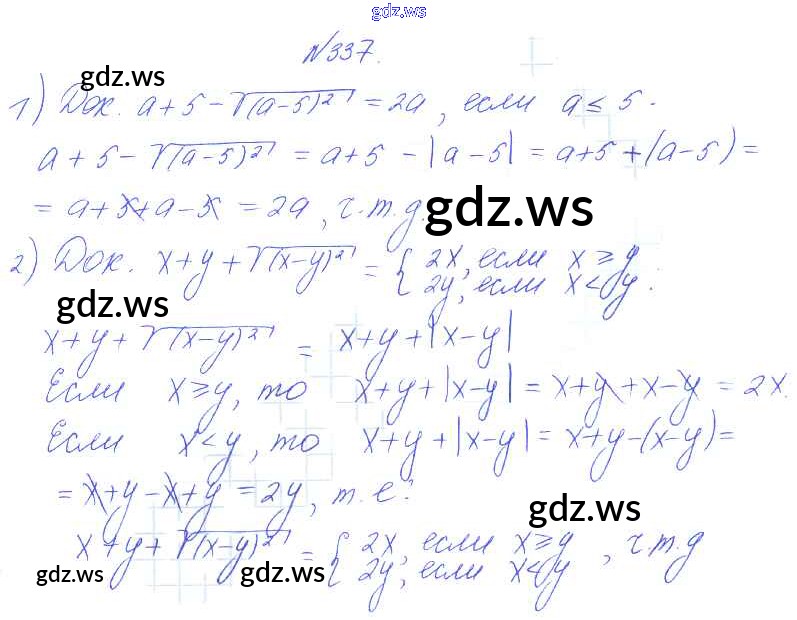 gdz.ws
№337.
gdz.ws
1) Док. a+5-√(a-5)² = 2a, если a ≤ 5.
a+5-√(a-5)² = a+5-|a-5| = a+5+(a-5) =
= a+5+a-5 = 2a, ч.т.д.
gdz.ws
2) Док. x+y+√(x-y)² = { 2x, если x ≥ y
2y, если x < y.
gdz.ws
x+y+√(x-y)² = x+y+|x-y|
Если x≥y, то x+y+|x-y| = x+y+x-y = 2x.
Если x<y, то x+y+|x-y| = x+y-(x-y) =
= x+y-x+y = 2y, т.е.:
gdz.ws
x+y+√(x-y)² = { 2x, если x≥y
2y, если x<y , ч.т.д
gdz.ws
gdz.ws